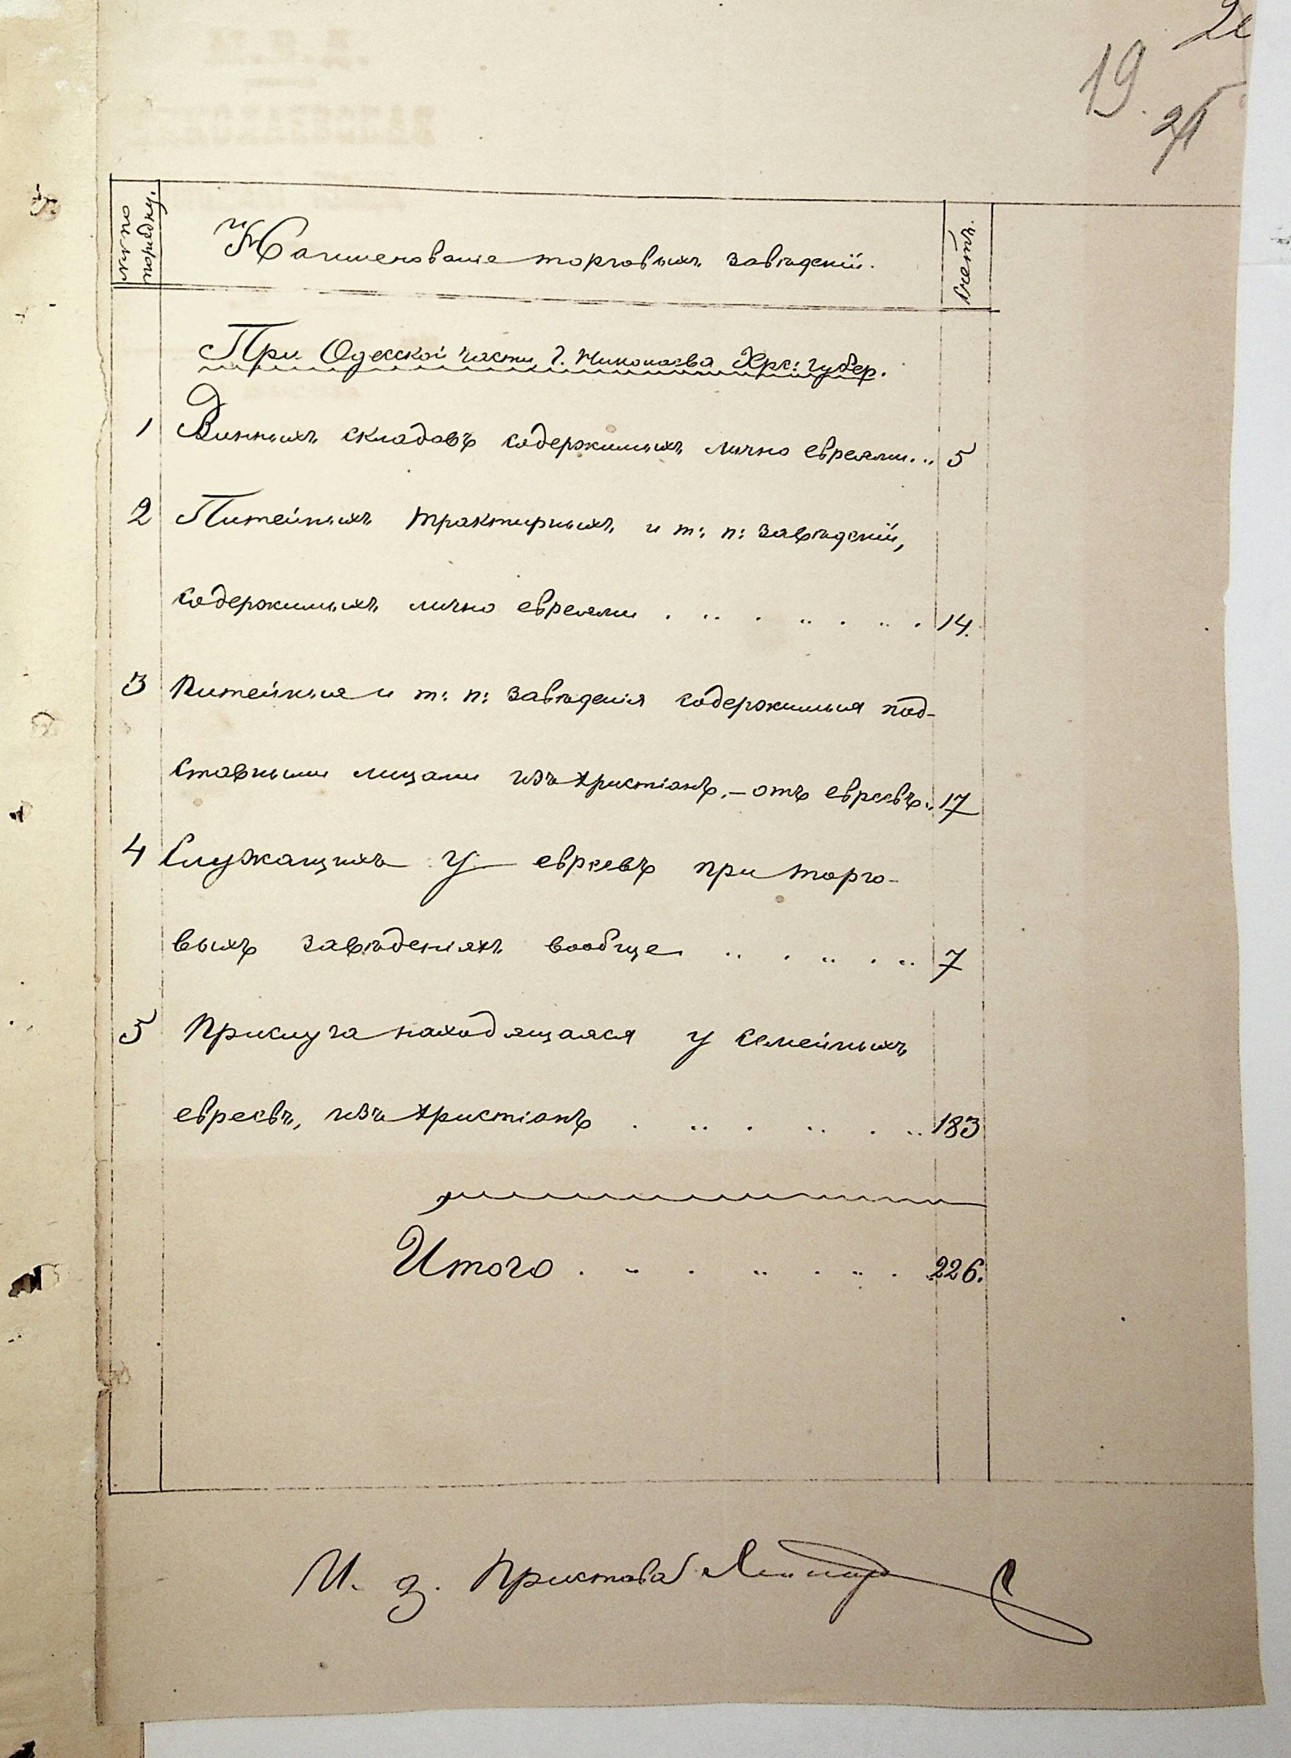 19
21
№№ по порядку.
Наименованіе торговыхъ заведеній.
Счетъ.
При Одесской части г. Николаева Хрс: губер.
1 Винныхъ складовъ содержимыхъ лично евреями... 5
2 Питейныхъ трактирныхъ и т: п: заведеній,
содержимыхъ лично евреями . .. . .. . .. . 14.
3 Питейныя и т: п: заведенія содержимыя под-
ставными лицами изъ христіанъ,– отъ евреевъ.. 17
4 Служащихъ у евреевъ при торго-
выхъ заведеніяхъ вообще .. . .. . .. 7
5 Прислуга находящаяся у семейныхъ
евреевъ, изъ христіанъ . .. . .. . .. 183
Итого . .. . .. . .. . 226.
И. з. Пристава